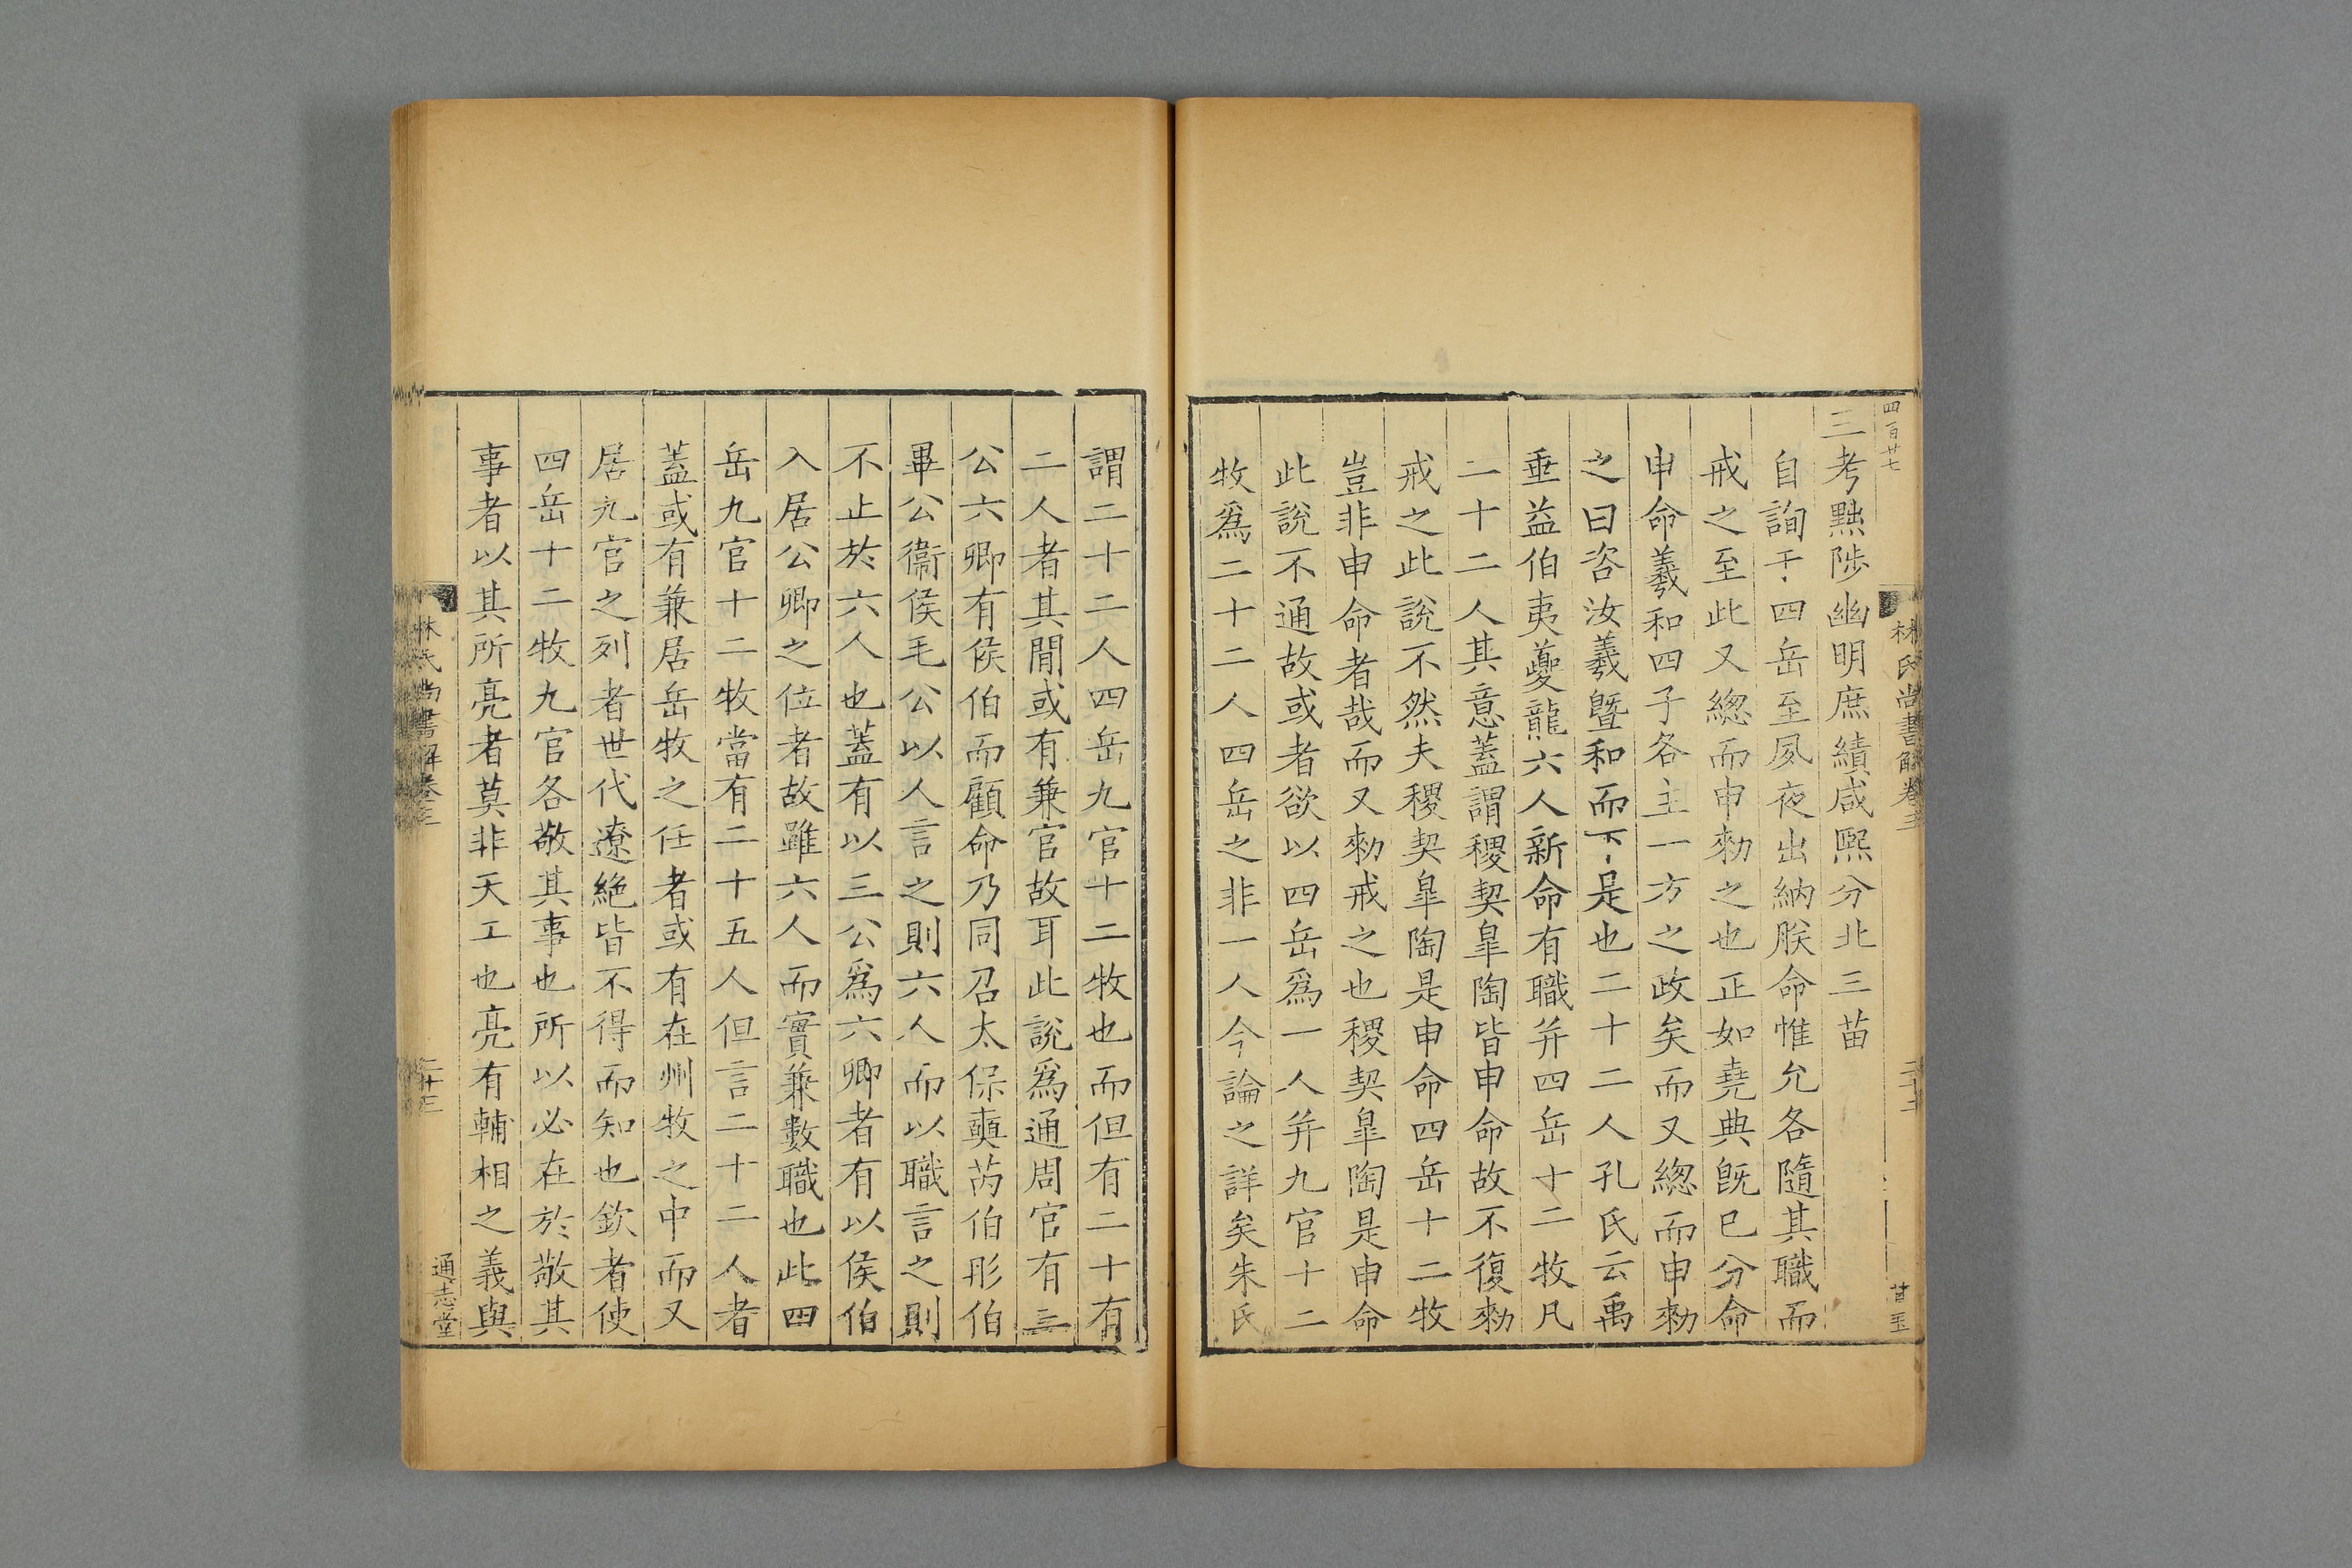 四百廿七
林氏尚書解卷三
甘玉
三考黜陟幽明庶績咸熙分北三苗
自詢于四岳至夙夜出納朕命惟允各隨其職而
戒之至此又緫而申勑之也正如堯典旣已分命
申命羲和四子各主一方之政矣而又緫而申勑
之曰咨汝羲曁和而下是也二十二人孔氏云禹
垂益伯夷夔龍六人新命有職并四岳十二牧凡
二十二人其意蓋謂稷契臯陶皆申命故不復勑
戒之此說不然夫稷契臯陶是申命四岳十二牧
豈非申命者哉而又勑戒之也稷契臯陶是申命
此說不通故或者欲以四岳爲一人并九官十二
牧爲二十二人四岳之非一人今論之詳矣朱氏
謂二十二人四岳九官十二牧也而但有二十有
二人者其閒或有兼官故耳此說爲通周官有三
公六卿有侯伯而顧命乃同召太保奭芮伯彤伯
畢公衞侯毛公以人言之則六人而以職言之則
不止於六人也蓋有以三公爲六卿者有以侯伯
入居公卿之位者故雖六人而實兼數職也此四
岳九官十二牧當有二十五人但言二十二人者
蓋或有兼居岳牧之任者或有在州牧之中而又
居九官之列者世代遼絕皆不得而知也欽者使
四岳十二牧九官各敬其事也所以必在於敬其
事者以其所亮者莫非天工也亮有輔相之義與
林氏尚書解卷三
二十三
通志堂